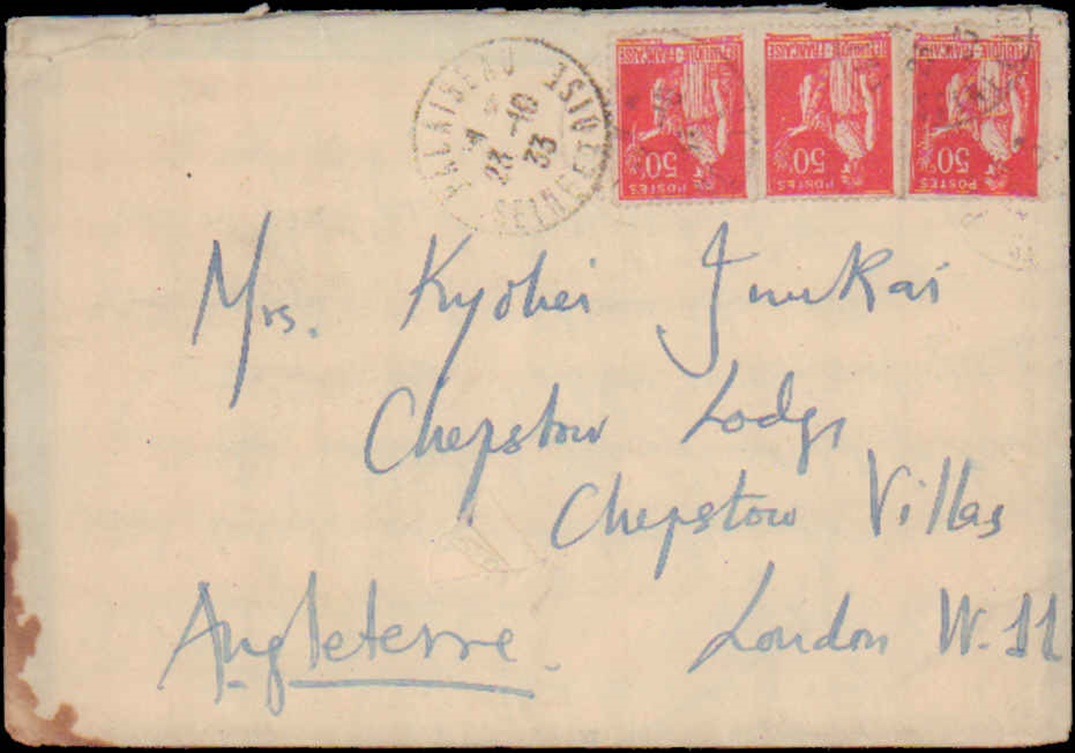 PALAISEAU SEINE ET OISE
23 -10
33
REPUBLIQUE FRANÇAISE
50c
POSTES
REPUBLIQUE FRANÇAISE
50c
POSTES
REPUBLIQUE FRANÇAISE
50c
POSTES
Mrs. Kyohei Inukai
Chepstow Lodge
Chepstow Villas
Angleterre. London W.11